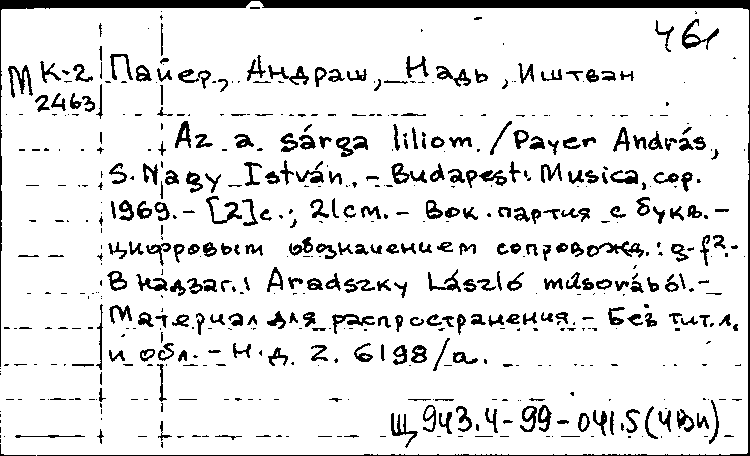 461
М К-2 Пайер, Андраш, Надь, Иштван
2463
Az a sárga liliom. / Payer András,
S. Nagy István. - Budapest: Musica, cop.
1969. - [2]с.; 21cm. - Вок. партия с букв.-
цифровым обозначением сопровожд.: g-f².-
В надзаг.: Aradszky László műsorából.-
Материал для распространения. - Без тит.л.
и обл. - Н.д. Z. 6198/a.
Щ 943.4-99-041.5(4Вн)